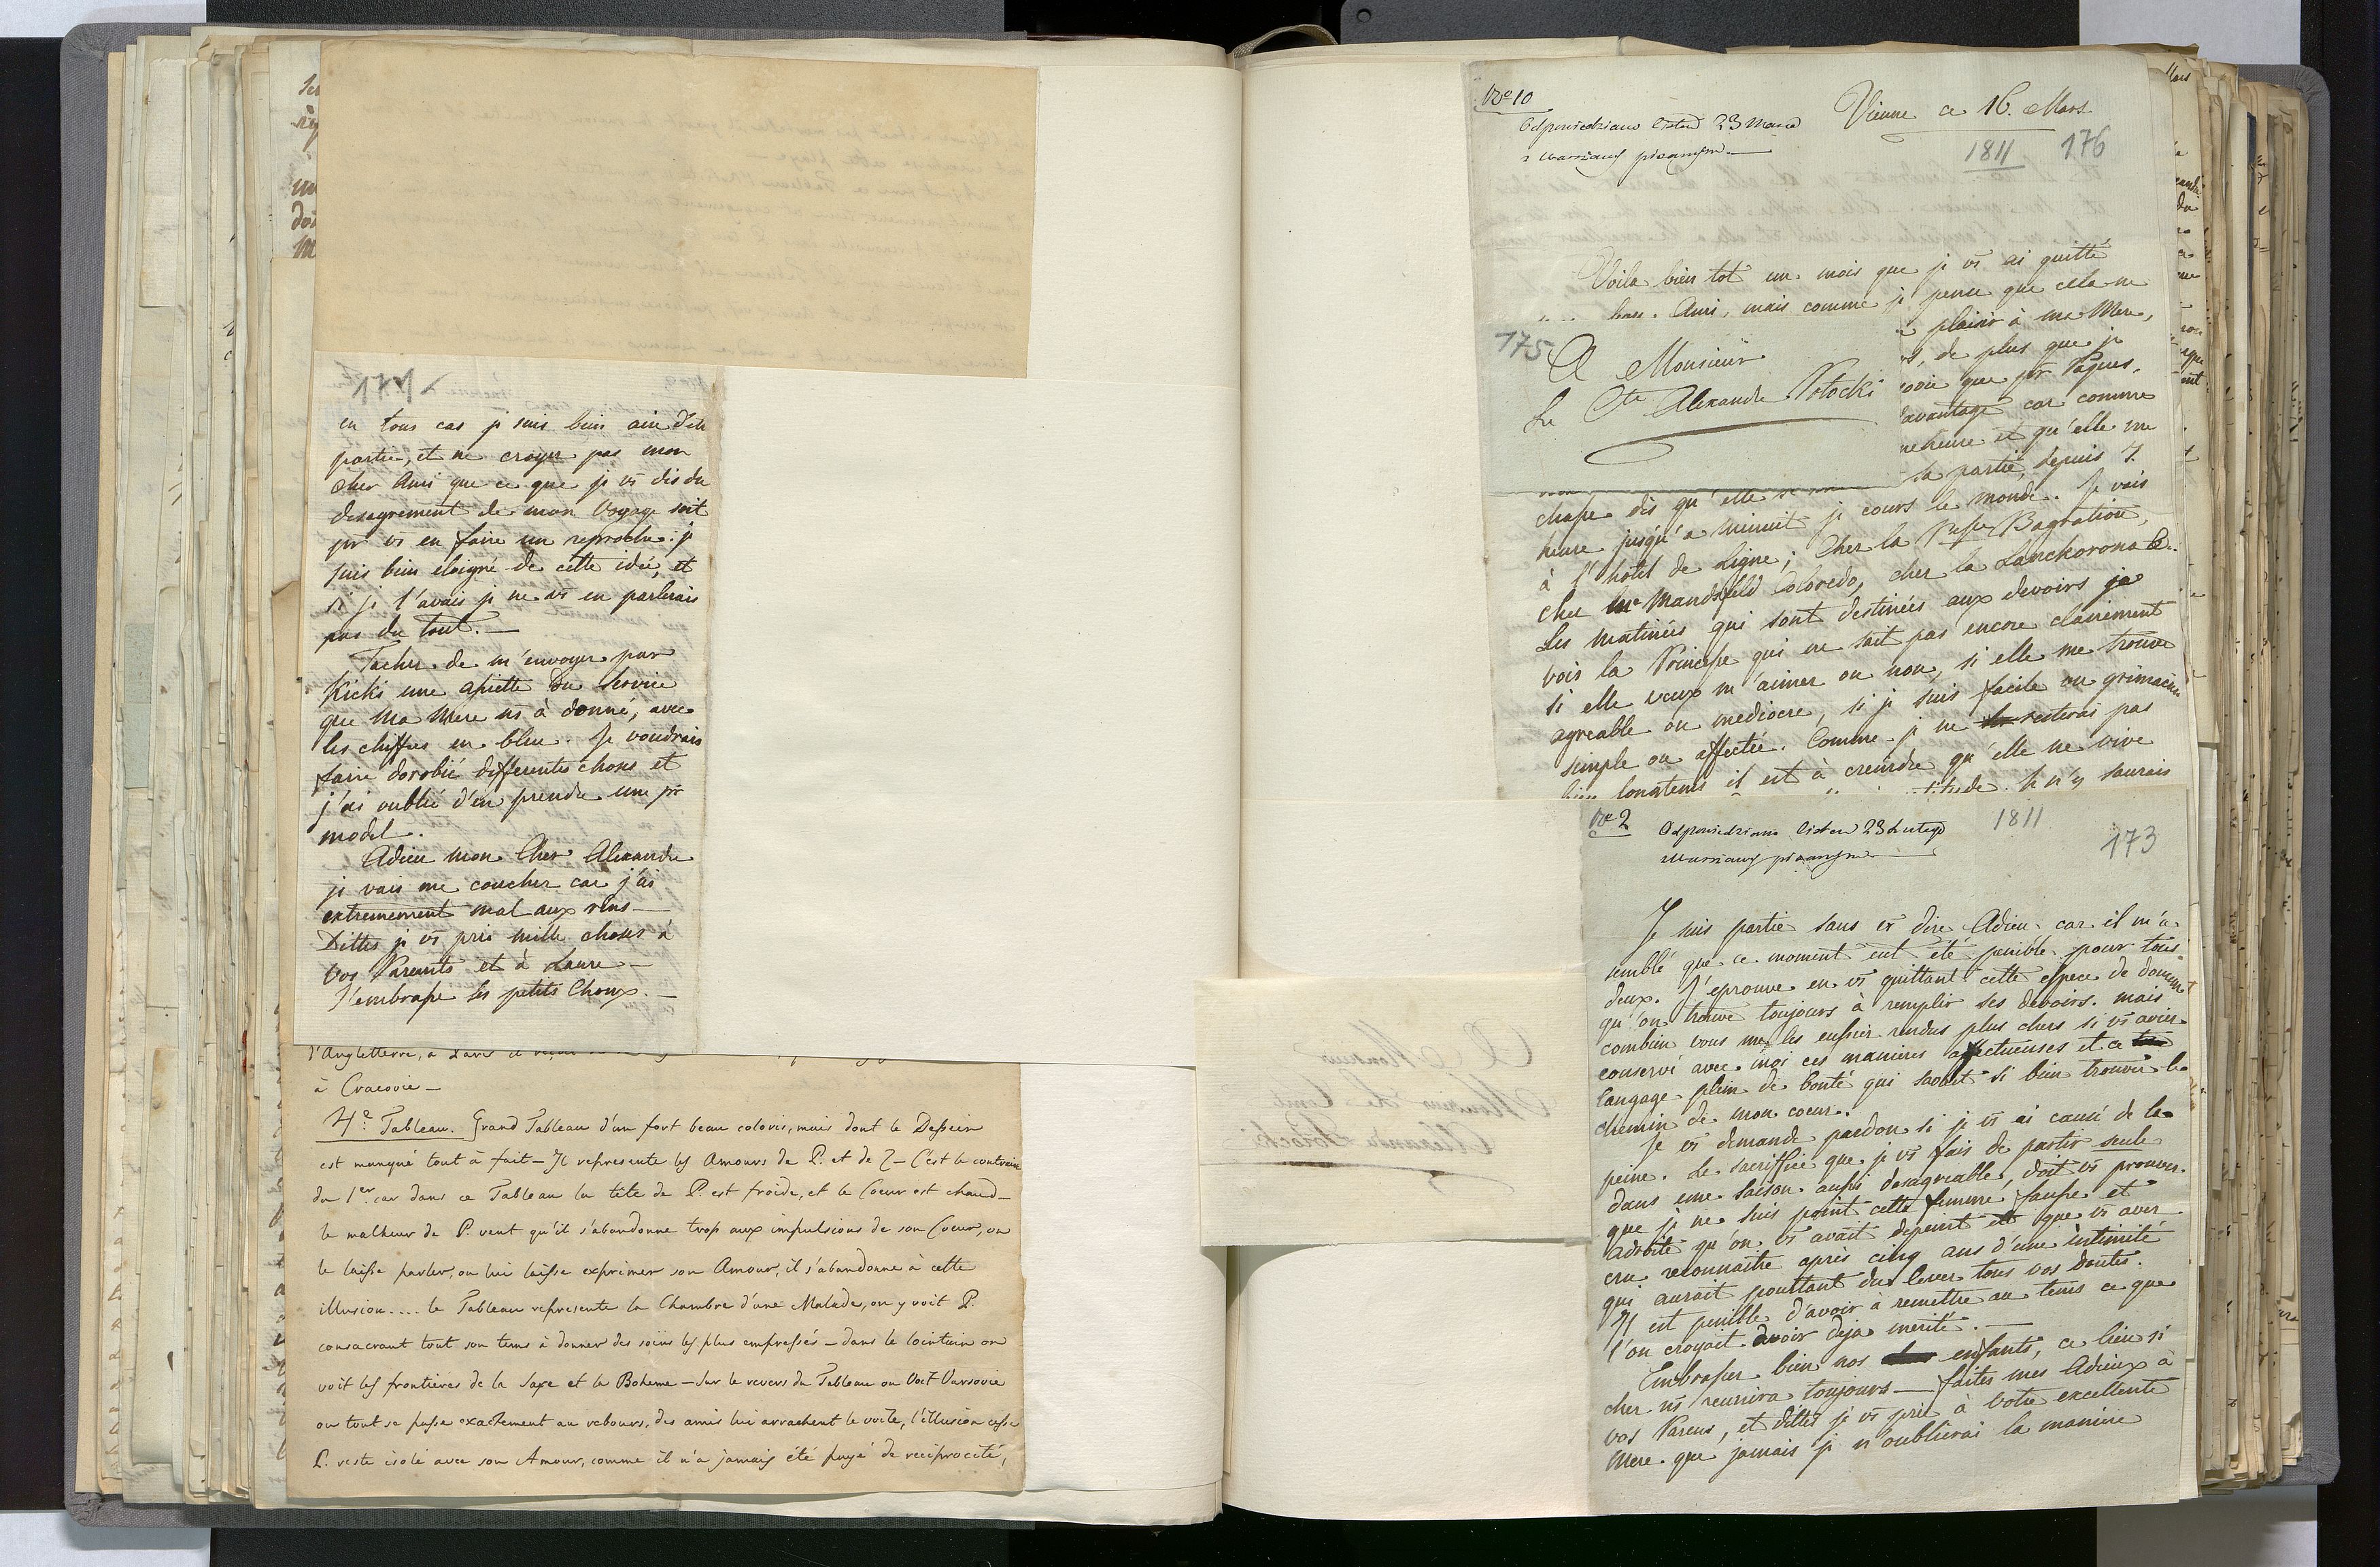 en tous cas je suis bien aise d'etre
partie, et ne croyez pas mon
cher Ami que ce que je vs dis du
desagrement de mon Voyage soit
pr vs en faire un reproche. je
suis bien eloigné de cette idée, et
si je l'avais je ne vs en parlerais
pas du tout. —
Tachez de m'envoyer par
Kicki une assiette du Service
que ma Mere ns à donné, avec
les chiffres en bleu. Je voudrais
faire dorobić differentes choses et
j'ai oublié d'en prendre une pr
model.
Adieu mon Cher Alexandre
je vais me coucher car j'ai
extremement mal aux reins —
Dittes je vs prie mille choses à
vos Parents et à Laure —
J'embrasse les petits Choux. —
d'Angleterre, a
à Cracovie —
4e Tableau. Grand Tableau d'un fort beau coloris, mais dont le Dessein
est manqué tout à fait — Il represente les Amours de P. et de Z — C'est le contraire
du 1er car dans ce Tableau la tête de P. est froide, et le Coeur est chaud —
le malheur de P. veut qu'il s'abandonne trop aux impulsions de son Coeur, on
le laisse parler, on lui laisse exprimer son Amour, il s'abandonne à cette
illusion.... le Tableau represente la Chambre d'une Malade, on y voit P.
consacrant tout son tems à donner des soins les plus empressés — dans le lointain on
voit les frontieres de la Saxe et la Boheme — Sur le revers du Tableau on Voit Varsovie
ou tout se passe exactement au rebours, des amis lui arrachent le voile, l'illusion cesse
P. reste isolé avec son Amour, comme il n'a jamais été payé de reciprocité,
No 10
Odpowiedziano listem 23 Marca
z Warszawy pisanym —
Vienne ce 16. Mars.
1811 176
Voila bien tot un mois que je vs ai quitté
Ami, mais comme je pense que cela ne
plaisir à ma Mere,
de plus que je
que pr Pâques,
davantage car comme
et qu'elle me
la partie, depuis 7.
175
A Monsieur
Le Cte Alexandre Potocki
chape dès qu'elle
heure jusqu'a minuit je cours le monde. Je vais
à l'hôtel de Ligne; Chez la Psse Bagration,
chez Me Mansfeld Coloredo, chez la Lanckoronska.
Les matinées qui sont destinées aux devoirs je
vois la Princesse qui ne sait pas encore clairement
si elle veux m'aimer ou non, si elle me trouve
agreable ou mediocre, si je suis facile ou grimaciere
simple ou affectée. Comme je ne resterai pas
bien longtems il est à creindre qu'elle ne vive
saurais
No 2
Odpowiedziano listem 23 Lutego
Warszawy pisanym
1811
173
Je suis partie sans vs dire Adieu. car il m'a
semblé que ce moment eut été penible pour tous
deux. J'eprouve en vs quittant cette espece de douceur
qu'on trouve toujours à remplir ses devoirs. mais
combien vous me les eussiez rendus plus chers si vs aviez
conservé avec moi ces manieres affectueuses et ce
langage plein de bonté qui savoit si bien trouver le
chemin de mon coeur.
Je vs demande pardon si je vs ai causé de la
peine. Le sacriffice que je vs fais de partir seule
dans une saison aussi desagreable, doit vs prouver
que je ne suis point cette femme fausse et
adroite qu'on vs avait depeint et que vs avez
cru reconnaitre après cinq ans d'une intimité
qui aurait pourtant du lever tous vos doutes.
Il est penible d'avoir à remettre au tems ce que
l'on croyait avoir deja merité. —
Embrassez bien nos enfants, ce lien si
cher ns reunira toujours — faites mes Adieux à
vos Parens, et dittes je vs prie à votre excellente
Mere que jamais je n'oublierai la maniere
A Monsieur
Monsieur le Comte
Alexandre Potocki